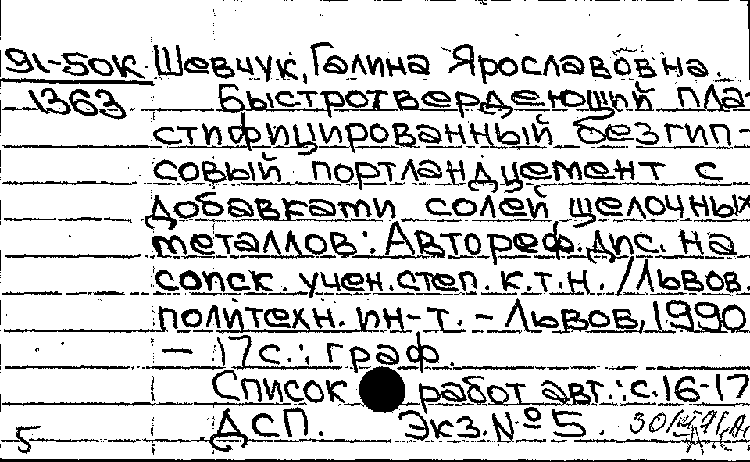 91-50К Шевчук, Галина Ярославовна.
1363 Быстротвердеющий пла-
стифицированный безгип-
совый портландцемент с
добавками солей щелочных
металлов: Автореф. дис. на
соиск. учен. степ. к.т.н. /Львов.
политехн. ин-т. - Львов, 1990
- 17 с.: граф.
Список работ авт.: с.16-17
ДСП. Экз. № 5.
5